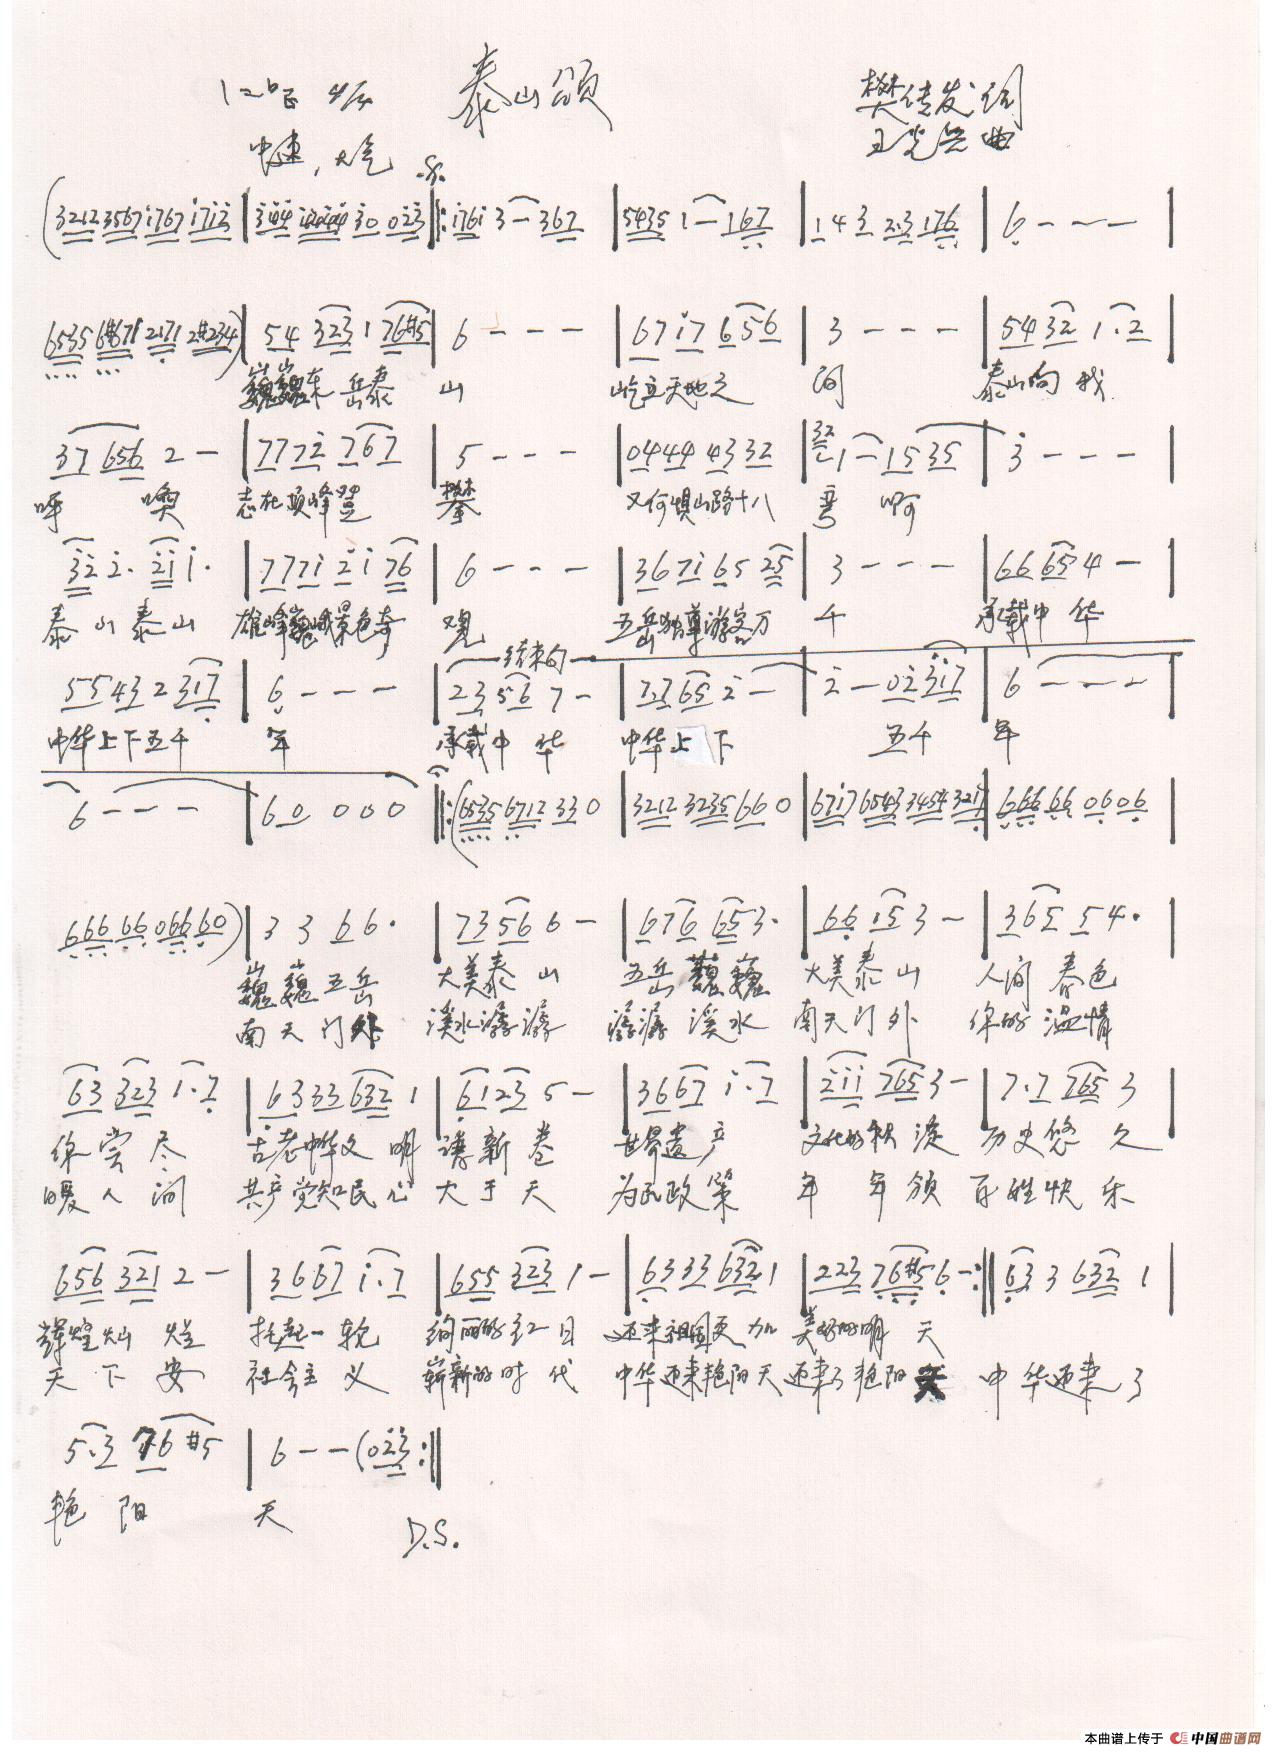 泰山颂
1=bE 4/4
樊传发词
中速，大气
王光兵曲
(3212 3567 i767 i7i2 | 3 0 023 |: i76i 3 — 367 | 5435 1 — 167 | 1 4 3 2·3 176 | 6 — — —
6535 2171 2#234) | 54 323 1 76#5 | 6 — — — | 67 i7 656 | 3 — — — | 54 32 1·2
巍巍东岳泰 山 屹立天地之 间 泰山向我
37 656 2 — | 777 2 767 | 5 — — — | 0444 4332 | 32 1 — 15 35 | 3 — — —
呼 唤 志在顶峰登 攀 又何惧山路十八 弯 啊
32 2· 2i i· | 777i 2 i 76 | 6 — — — | 367i 65 25 | 3 — — — | 66 65 4 —
泰山泰山 雄峰巍峨景色奇 观 五岳独尊游客万 千 承载中华
结束句
5543 2 317 | 6 — — — | 23 56 7 — | 7265 2 — | 2 — 02 317 | 6 — — —
中华上下五千 年 承载中 华 中华上下 五千 年
6 — — — | 6 0 0 0 0 |: (6535 6712 330 | 3212 3235 660 | 67i7 6543 3454 321 | 666 66 0606
666 66 066 60) | 3 3 66· | 73 56 6 — | 676 653· | 66 i5 3 — | 365 54·
巍巍五岳 大美泰 山 五岳巍巍 大美泰山 人间春色
南天门外 溪水潺潺 潺潺溪水 南天门外 你的温情
63 323 1·7 | 6333 632 1 | 6123 5 — | 3667 i·7 | 2ii 765 3 — | 7·7 765 3
你尝尽 古老中华文 明 谱新卷 世界遗产 文化的积淀 历史悠久
暖人间 共产党知民心 大于天 为民政策 年年颁 百姓快乐
656 321 2 — | 3667 i·7 | 655 323 1 — | 6333 632 1 | 223 76#5 6 — :| 63 3 632 1
辉煌灿烂 托起一轮 绚丽的红日 迎来祖国更加 美好的明天
天下安 社会主义 崭新的时代 中华迎来艳阳天 迎来了艳阳天 中华迎来了
5·3 76 #5 | 6 — — (023 :|
艳阳 天
D.S.
本曲谱上传于 中国曲谱网